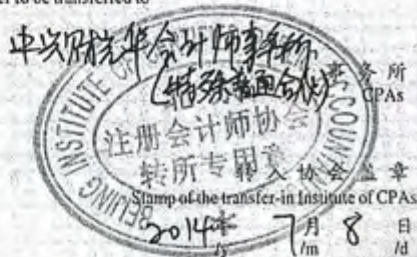 er to be transferred to
中兴财光华会计师事务所
(特殊普通合伙)
事务所
CPAs
BEIJING INSTITUTE OF CERTIFIED PUBLIC ACCOUNTANTS
注册会计师协会
转所专用章
转入协会盖章
Stamp of the transfer-in Institute of CPAs
2014年 7月 8日
/y /m /d